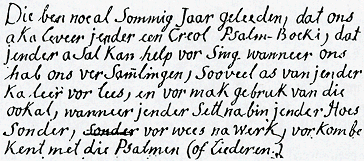 Die ben noeal Sommig Jaar geleeden, dat ons
a ka leveer jender een Creol Psalm-Boeki, dat
jender a Sal kan help vor Sing wanneer ons
hab ons ver Samlingen, Sooveel as van jender
ka leer vor lees, en vor mak gebruk van die
ookal, wanneer jender Sett na bin jender Hoes
Sonder, sonder vor wees na Werk, vor kom be
kent mit die Psalmen (of Liederen.)